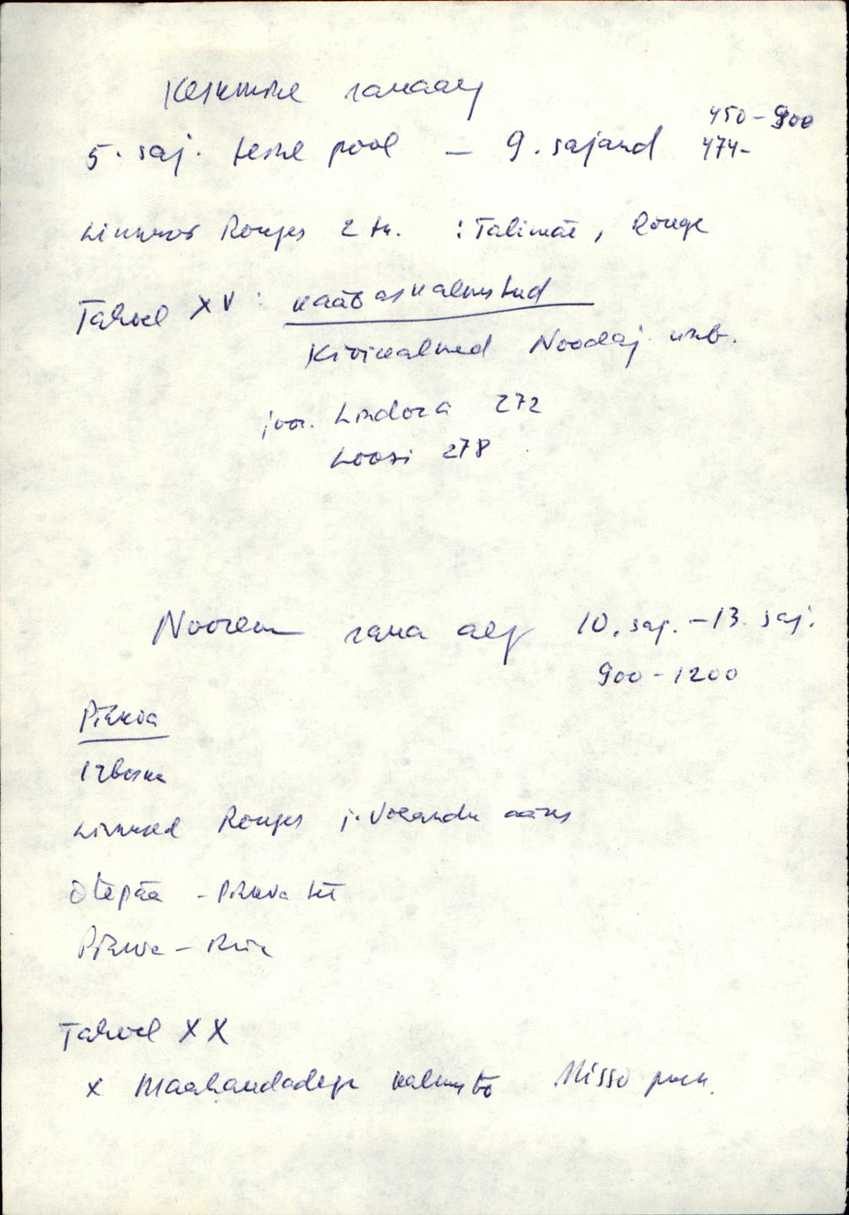 Keskmine rauaaeg
450-900
5. saj. teine pool - 9. sajand 474-
Linnus Rõuges 2 tk. : Talimäe, Rõuge
Tahvel XV: kääbaskalmistud
Kivikalmed Noodasj ümb.
joon. Lindora 272
Loosi 278
Noorem raua aeg 10. saj. - 13. saj.
900-1200
Pihkva
Izborsk
Linnused Rõuges j. Võhandu ääres
Otepää - Pihkva tee
Pihkva - Riia
Tahvel XX
x Maahaudadega kalmistu Misso